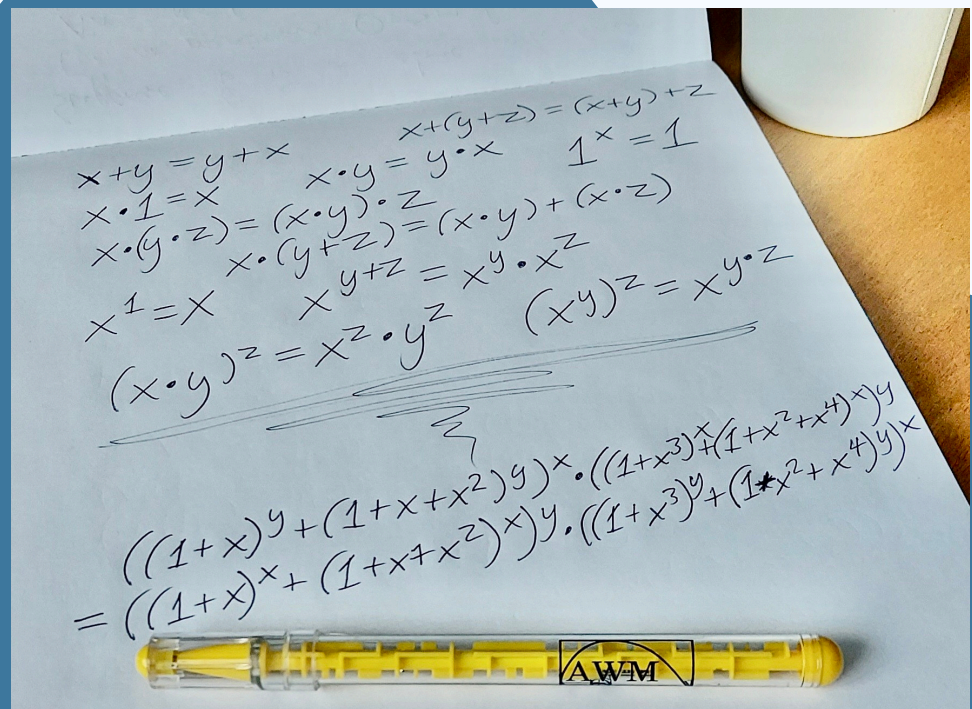 x+(y+z) = (x+y)+z
x+y = y+x x·y = y·x 1^x = 1
x·1=x
x·(y·z) = (x·y)·z
x·(y+z) = (x·y)+(x·z)
x^1 = x x^{y+z} = x^y·x^z (x^y)^z = x^{y·z}
(x·y)^z = x^z·y^z
((1+x)^y+(1+x+x^2)^y)^x·((1+x^3)^x+(1+x^2+x^4)^x)^y
= ((1+x)^x+(1+x+x^2)^x)^y·((1+x^3)^y+(1+x^2+x^4)^y)^x
AWM